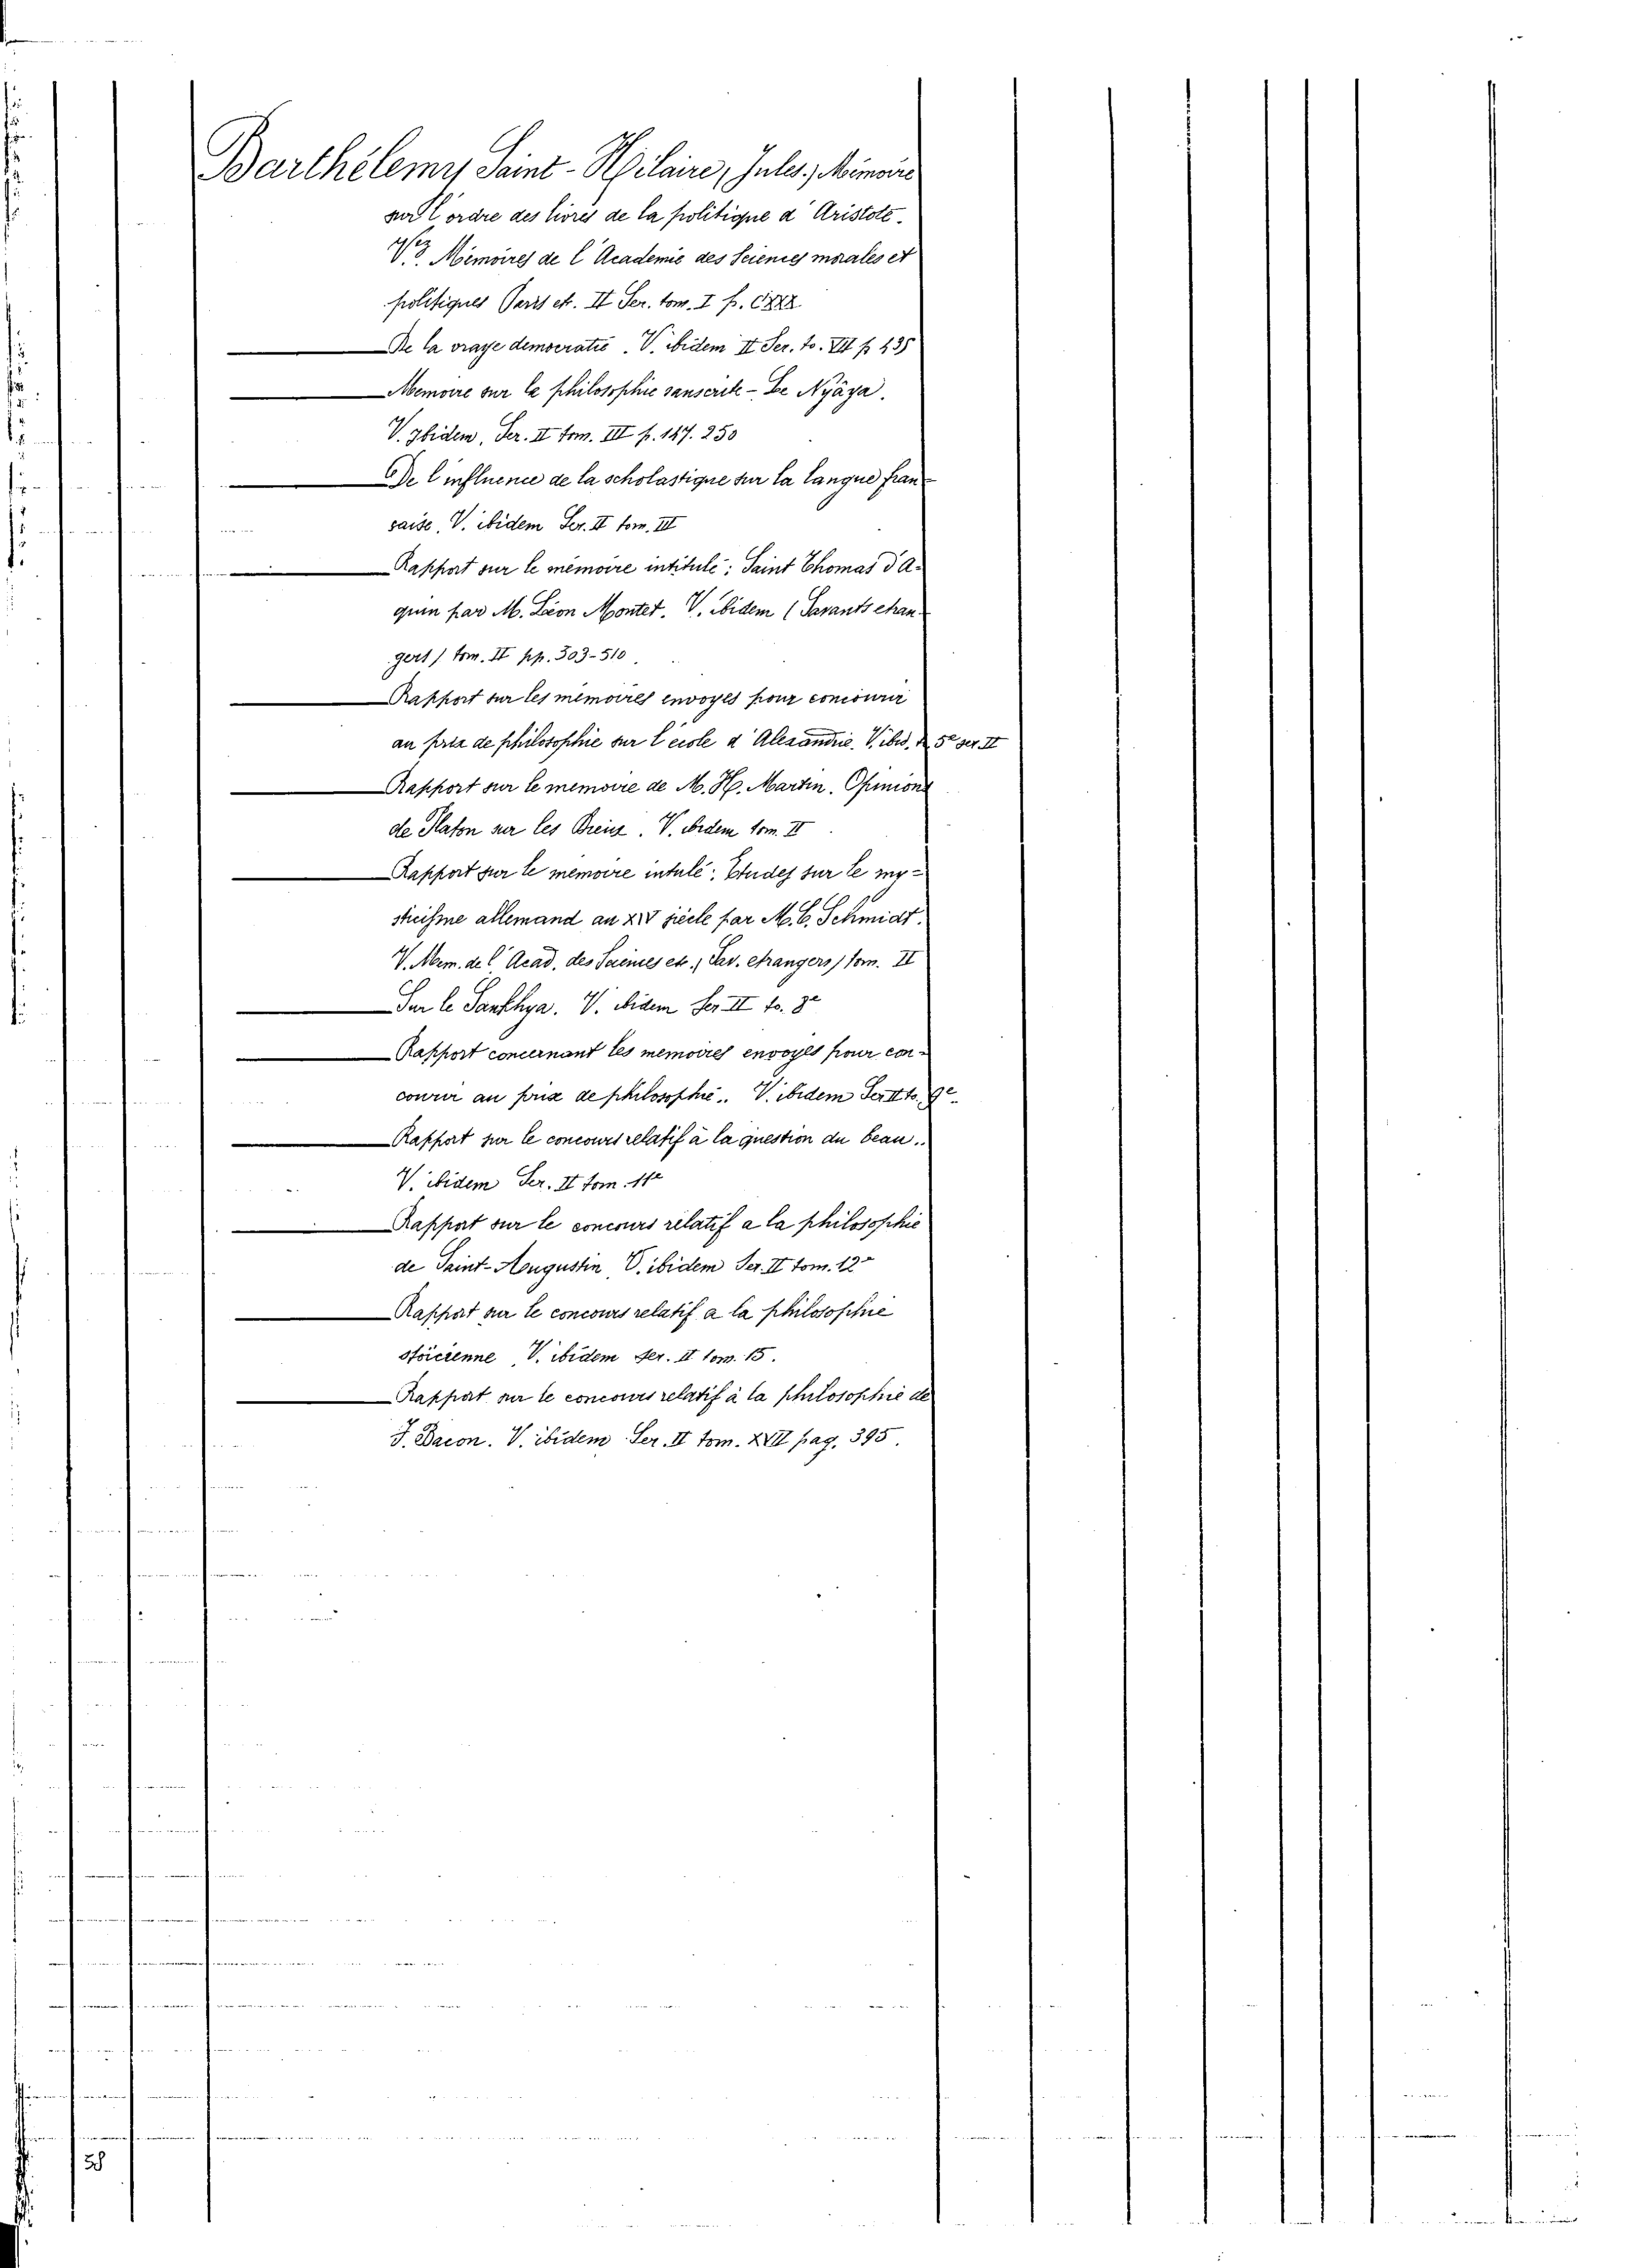 Barthélemy Saint-Hilaire, Jules, Mémoire
sur l'ordre des livres de la politique d'Aristote.
V. Mémoires de l'Academie des Sciences morales et
politiques Paris etc. II Ser. tom. I p.
De la vraye democratie. V. ibidem II Ser. to. VII p 435
Memoire sur la philosophie sanscrite - Le Nyâya.
V. Ibidem, Ser. II tom. III p. 147. 250
De l'influence de la scholastique sur la langue fran-
saise, V. ibidem Ser. II tom. III
Rapport sur le mémoire intitulé: Saint Thomas d'A-
quin par M. Léon Montet. V. ibidem (Savants etran-
gers) tom. II pp. 303-510.
Rapport sur les mémoires envoyés pour concourir
au prix de philosophie sur l'ecole d'Alexandrie. V. ibid, 5e ser. II
Rapport sur le memoire de M. H. Martin. Opinions
de Platon sur les Dieux. V. ibidem tom. II
Rapport sur le memoire intulé: Etudes sur le my-
sticisme allemand au XIV siècle par M. C. Schmidt.
V. Mem. de l'Acad. des Sciences etc., Sav. etrangers) tom. II
Sur le Sankhya. V. ibidem Ser II to. 8e
Rapport concernant les memoires envoyés pour con-
courir au prix de philosophie.. V. ibidem Ser II to. 9e.
Rapport sur le concours relatif à la question du beau..
V. ibidem Ser. II tom. 11e
Rapport sur le concours rélatif a la philosophie
de Saint-Augustin, V. ibidem Ser. II tom. 12e
Rapport sur le concours relatif a la philosophie
stoicienne, V. ibidem Ser. II tom. 15.
Rapport sur le concours relatif à la philosophie de
F. Bacon. V. ibidem Ser. II tom. XVII pag. 395.